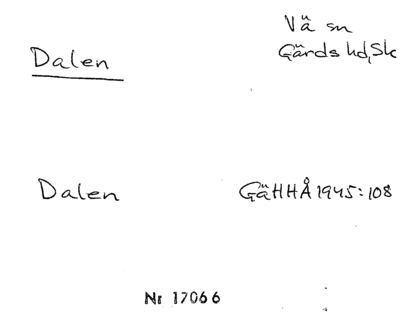 Vä sn
Dalen
Gärds hd, Sk
Dalen
GäHHÅ 1945:108
Nr 17066